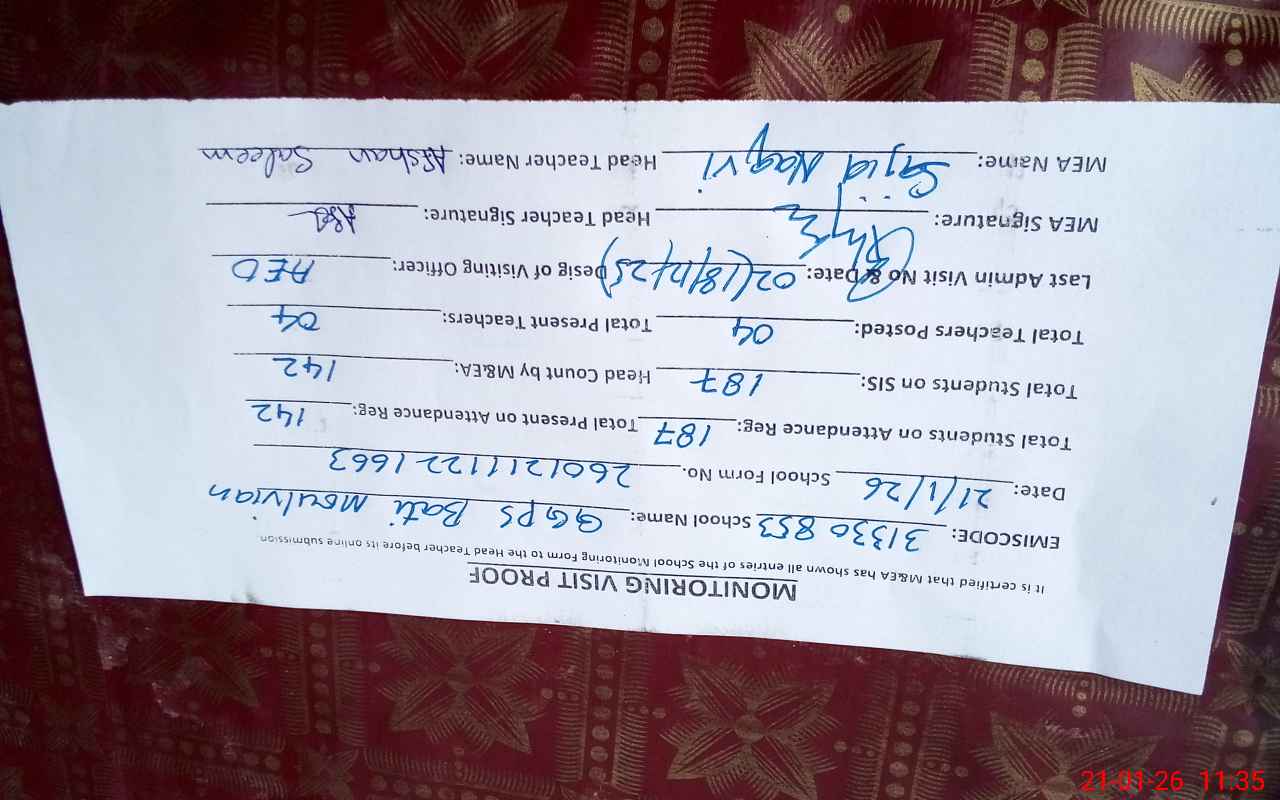 MONITORING VISIT PROOF
It is certified that M&EA has shown all entries of the School Monitoring Form to the Head Teacher before its online submission
EMISCODE: 31330853 School Name: GGPS Bati Moulvian
Date: 21/1/26 School Form No. 2601211122 1663
Total Students on Attendance Reg: 187 Total Present on Attendance Reg: 142
Total Students on SIS: 187 Head Count by M&EA: 142
Total Teachers Posted: 04 Total Present Teachers: 04
Last Admin Visit No & Date: 02(18/12/25) Desig of Visiting Officer: AEO
MEA Signature: Head Teacher Signature:
MEA Name: Sajid Naqvi Head Teacher Name: Afshan Saleem
21-01-26 11:35